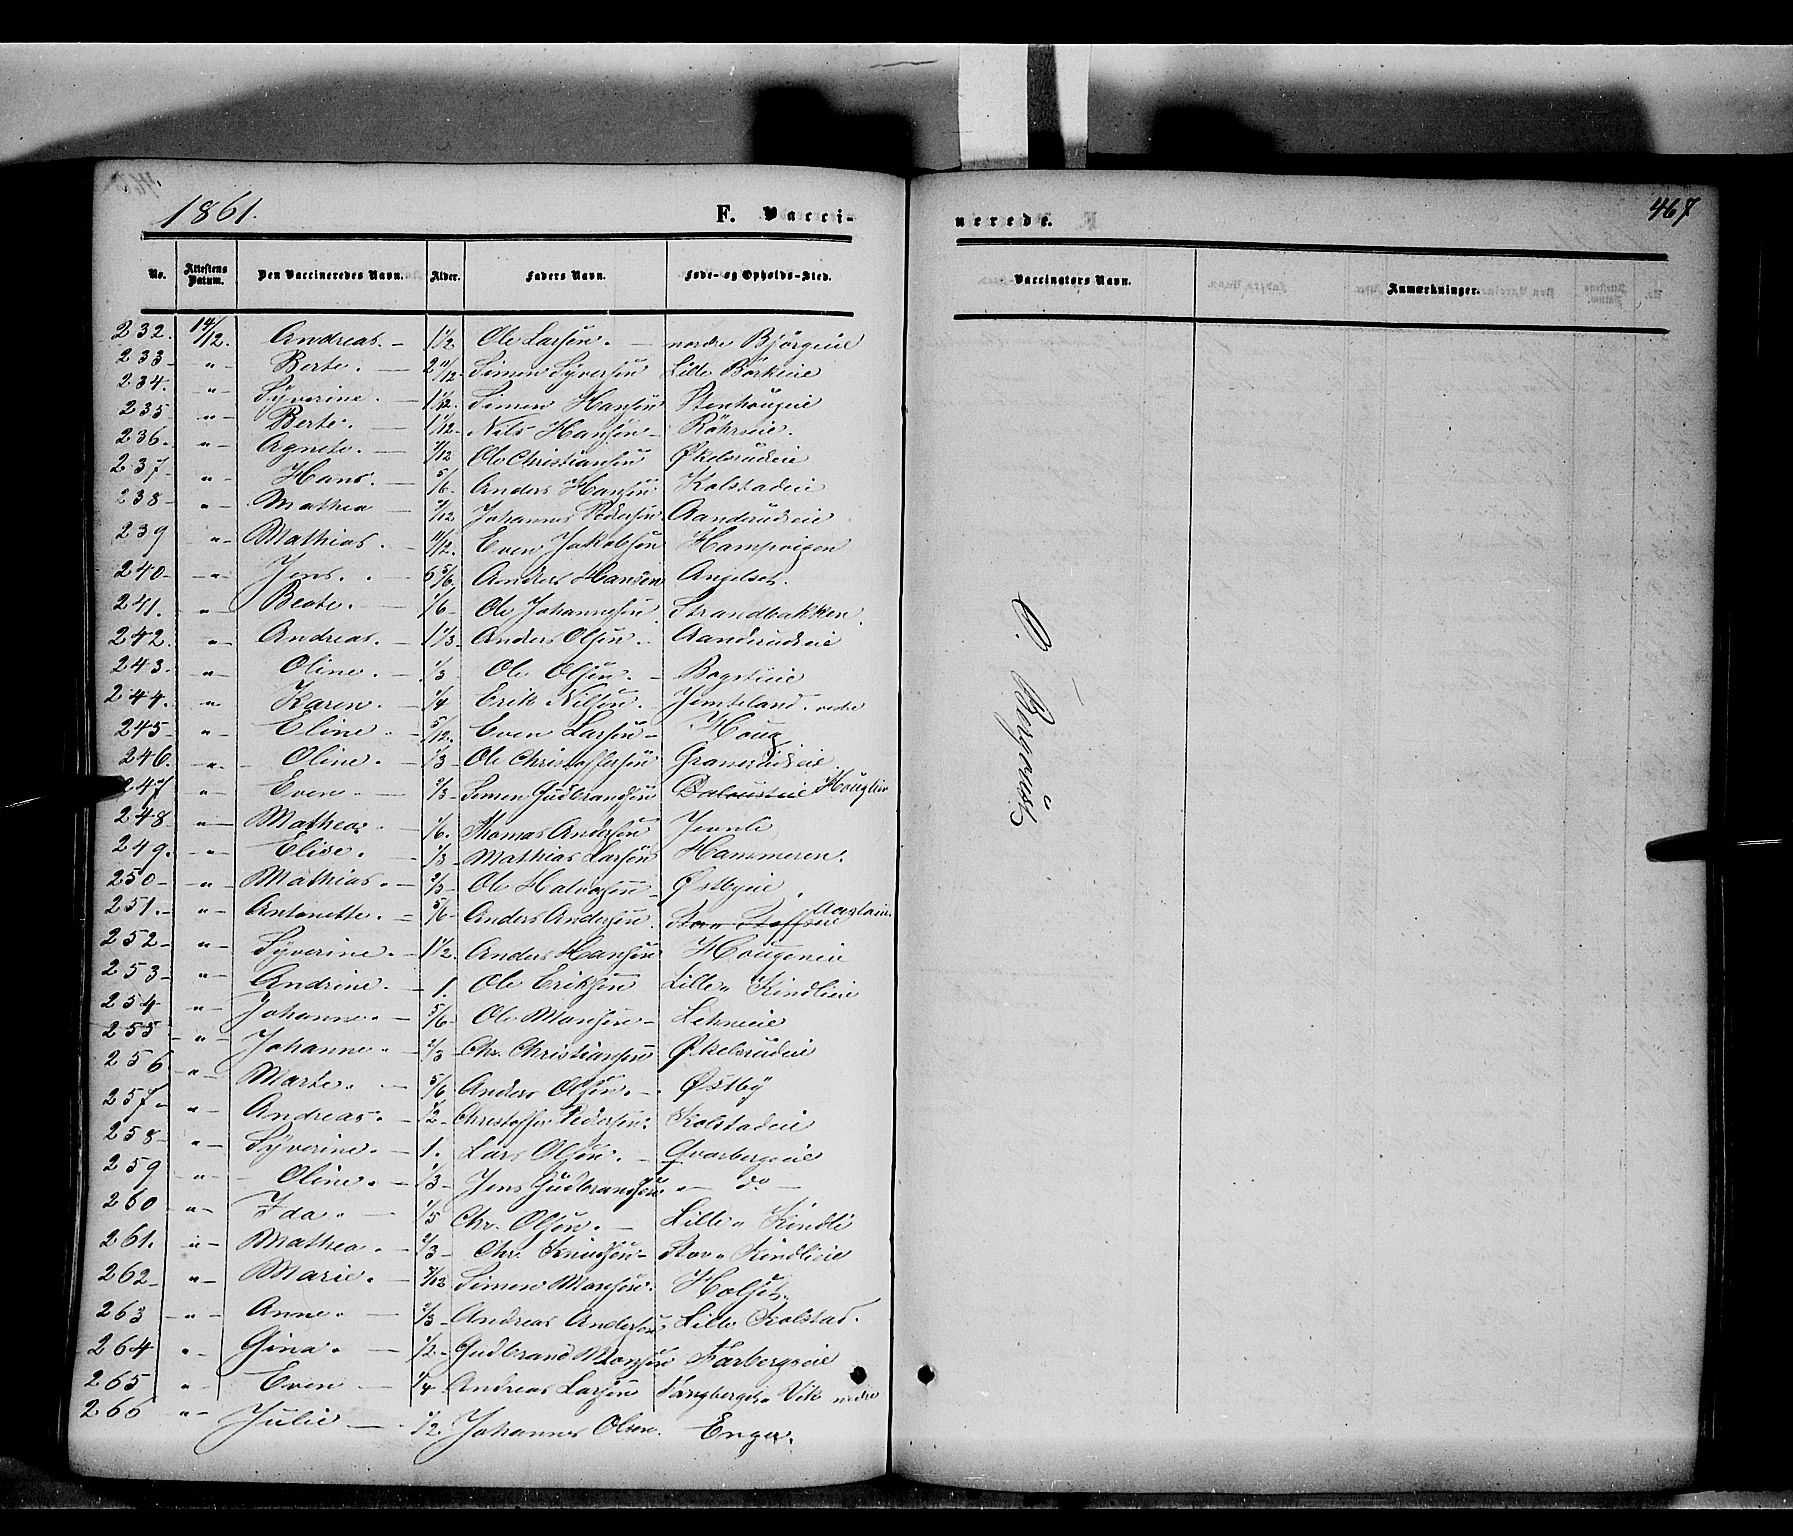 1861. F. Vacci- nerede. 467
No. Attestens Datum. Den Vaccineredes Navn. Alder. Faders Navn. Føde- og Opholds-Sted. Vaccinators Navn. Anmærkninger.
232. 14/12. Andreas. - 1 1/2 Ole Larsen. - nordre Bjørgeeie
233 - " - Berte. - 2 11/12 Simen Syversen Lille Børkeeie
234. " - Syverine. - 1 1/12. Simen Hansen Stenhougeie
235 - " - Berte. - 1 1/12 - Nils Hansen - Röhrseie.
236. - " - Agnete. - Ole Christiansen Økelsrudeie
237 - " - Hans. - 5/6. Anders Hansen Kolstadeie
238 - " - Mathea - Johannes Pedersen Aanderudseie
239 " - Mathias. - 11/12. Even Jakobsen Hampvigen
240 - - " - Jens. - 6 5/6. Anders Hansen Angelset.
241. " - Beate. - 1/6 - Ole Johannesen Strandbakken.
242. - " - Andreas. - 1 1/3 - Anders Olsen. - Aanderudseie
243. - " - Oline. - 1/3 Ole Olsen. - Bagstieie
244. - " - Karen. - 1/4 Erik Nilsen. - Jemteland. vestre
245 - " - Eline. - 5/12. Even Larsen - Houg
246. - " - Oline. - 1/3 - Ole Christoffersen Granerudseie.
247 - " - Even. - 2/3 - Simen Gudbrandsen Houglien
248 - " - Mathea. - 1/6. Thomas Andersen Jevnle
249. - " - Elise. - 1/3 - Mathias Larsen Hammeren.
250 - - " - Mathias. - 2/3 - Ole Halvorsen - Østbyeie.
251. - " - Antonette. - 5/6 - Anders Andersen.
252 - " - Syverine. - 1 1/2. Anders Hansen Hougeneie
253 - " - Andrine. - 1. Ole Eriksen Lille " Kindlieie
254 - " - Johanne. - 5/6 - Ole Monsen - Lehneeie
255 - - " - Johanne. - 2/3 - Chr. Christiansen Økelsrudeie
256 - " - Marte. - 5/6 Anders Olsen. - Østby
257. - " Andreas. - 1/2 - Christoffer Pedersen. Kolstadeie
258 - " - Syverine. - 1. Lars Olsen. - Qvarbergseie
259 " - Oline. - 1/3 - Jens Gudbrandsen " - do -
260 - " - Ida. - 1/5 Chr. Olsen. - Lille " Kindli
261. - " - Mathea. - 2/3 - Chr. Knudsen - Stor " Kindlieie
262 - " - Marie. - Simen Monsen. Holset.
263 - " - Anne. - 2/3 - Andreas Andersen. Lille Kolstad.
264 " - Gina. - 1/2 - Gudbrand Monsen Farbergseie
265 " - Even - 1/4 Andreas Larsen Fangberget " Vik nedre
266 " - Julie - 1/2. Johannes Olsen. Enger.
O. Bergqvist